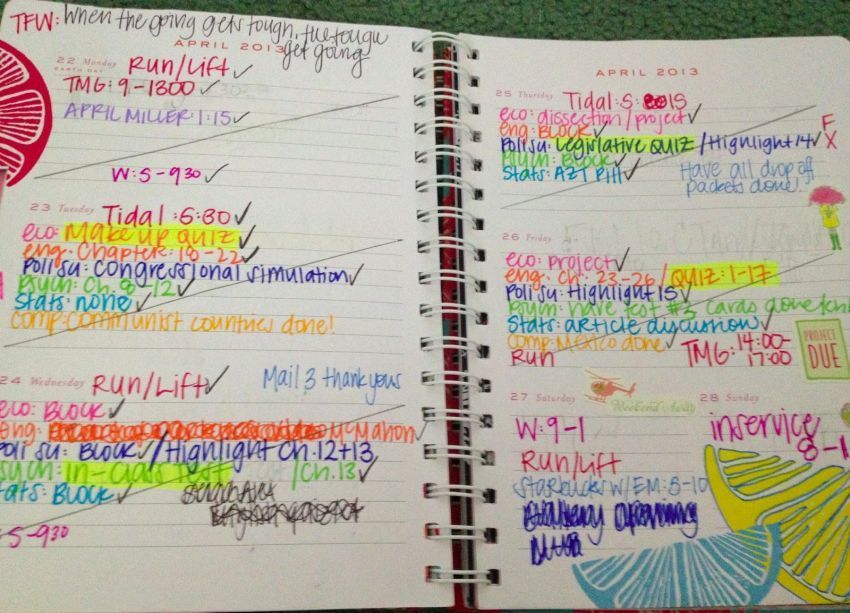 TFW: When the going gets tough, the tough
get going
APRIL 2013
22 Monday Run/Lift ✓
EARTH DAY
TMG: 9-1300 ✓
APRIL MILLER: 1:15 ✓
W: 5-930 ✓
23 Tuesday Tidal: 5:30 ✓
eco: Make up QUIZ ✓
eng: Chapter: 18-22 ✓
Poli Su: Congressional simulation ✓
Psych: Ch. 8-12 ✓
Stats: none ✓
comp: communist countries done!
24 Wednesday Run/Lift ✓ Mail 3 thank yous
eco: BLOCK ✓
eng: McMahon ✓
Poli Su: BLOCK ✓/Highlight Ch. 12+13
psych: in-class Test /Ch. 13 ✓
Stats: BLOCK ✓
5-930
APRIL 2013
25 Thursday Tidal: 5: 15
eco: dissection/project ✓
eng: BLOCK ✓
Poli Su: Legislative QUIZ ✓/Highlight 14 ✓
F
X
Psych: Block ✓
Stats: AZT Pill ✓
Have all drop off
packets done!
26 Friday
eco: project ✓
eng: Ch. 23-26/QUIZ: 1-17
Poli Su: Highlight 15 ✓
Psych: have test #3 cards done
Stats: article discussion ✓
comp: Mexico done ✓
Run TMG: 14:00-
17:00
PROJECT
DUE
27 Saturday
Weekend Away
28 Sunday
W: 9-1
inservice
8-1
Run/Lift
Starbucks W/EM: 8-10